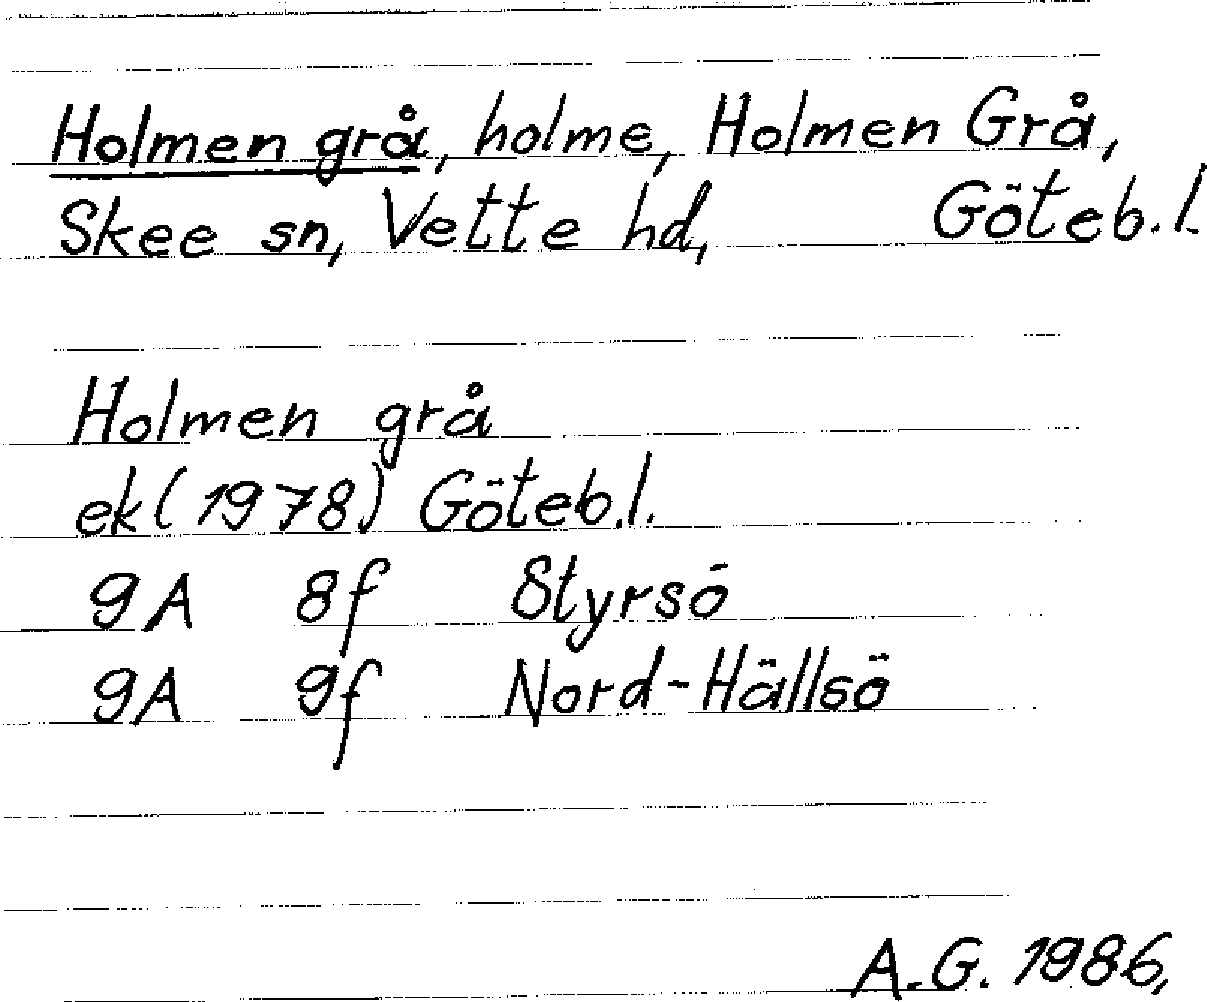 Holmen grå, holme, Holmen Grå,
Skee sn, Vette hd, Göteb.l.
Holmen grå
ek (1978) Göteb.l.
9A 8f Styrsö
9A 9f Nord-Hällsö
A.G. 1986,